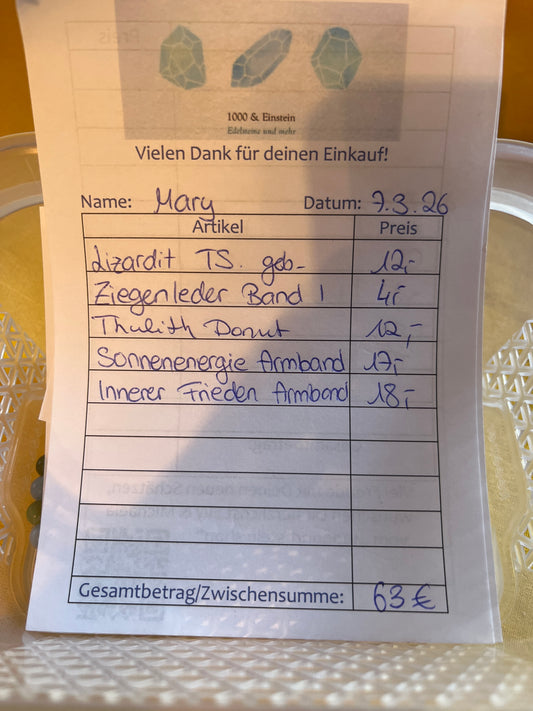 1000 & Einstein
Edelsteine und mehr
Vielen Dank für deinen Einkauf!
Name: Mary Datum: 7.3.26
Artikel Preis
Lizardit TS. geb- 12,-
Ziegenleder Band 1 4,-
Thulith Donut 12,-
Sonnenenergie Armband 17,-
Innerer Frieden Armband 18,-
Gesamtbetrag/Zwischensumme: 63 €